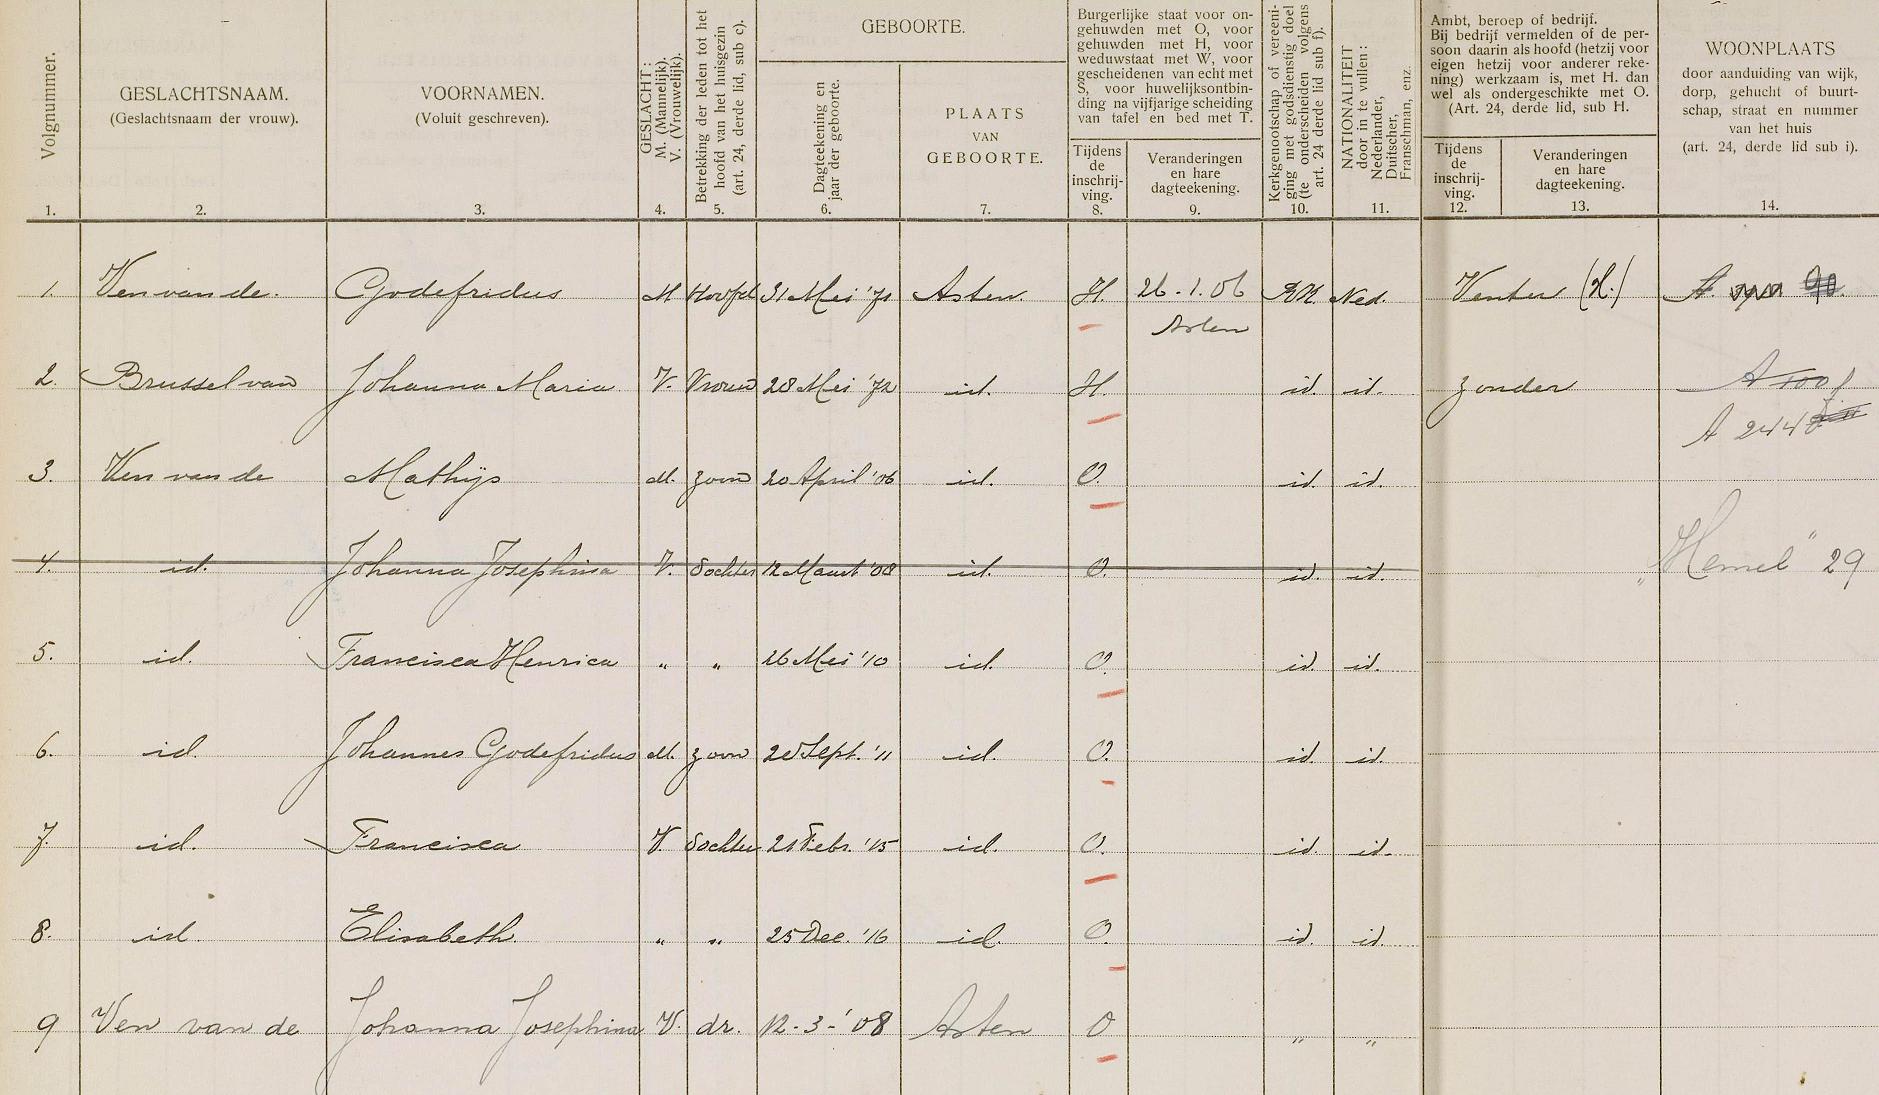 Volgnummer.
1.
GESLACHTSNAAM.
(Geslachtsnaam der vrouw).
2.
VOORNAMEN.
(Voluit geschreven).
3.
GESLACHT:
M. (Mannelijk).
V. (Vrouwelijk).
4.
Betrekking der leden tot het
hoofd van het huisgezin
(art. 24, derde lid, sub c).
5.
GEBOORTE.
Dagteekening en
jaar der geboorte.
6.
PLAATS
VAN
GEBOORTE.
7.
Burgerlijke staat voor on-
gehuwden met O, voor
gehuwden met H, voor
weduwstaat met W, voor
gescheidenen van echt met
S, voor huwelijksontbin-
ding na vijfjarige scheiding
van tafel en bed met T.
Tijdens
de
inschrij-
ving.
8.
Veranderingen
en hare
dagteekening.
9.
Kerkgenootschap of vereeni-
ging met godsdienstig doel
(te onderscheiden volgens
art. 24 derde lid sub f).
10.
NATIONALITEIT
door in te vullen:
Nederlander,
Duitscher,
Franschman, enz.
11.
Ambt, beroep of bedrijf.
Bij bedrijf vermelden of de per-
soon daarin als hoofd (hetzij voor
eigen hetzij voor anderer reke-
ning) werkzaam is, met H. dan
wel als ondergeschikte met O.
(Art. 24, derde lid, sub H.
Tijdens
de
inschrij-
ving.
12.
Veranderingen
en hare
dagteekening.
13.
WOONPLAATS
door aanduiding van wijk,
dorp, gehucht of buurt-
schap, straat en nummer
van het huis
(art. 24, derde lid sub i).
14.
1. Ven van de. Godefridus M Hoofd 31 Mei '71 Asten. H. 26-1.06 RK Ned. Venter (H.) A. 90.
Asten
2. Brussel van Johanna Maria V. Vrouw 28 Mei '72 id. H. id. id. zonder A 100f
A 244d
3. Ven van de Mathijs M. zoon 20 April '06 id. O. id. id.
4. id. Johanna Josephina V. dochter 12 Maart '08 id. O. id. id. „Hemel" 29
5. id. Francisca Henrica " " 26 Mei '10 id. O. id. id.
6. id. Johannes Godefridus M. zoon 20 Sept. '11 id. O. id. id.
7. id. Francisca V. dochter 21 Febr. '15 id. O. id. id.
8. id. Elisabeth. " " 25 Dec. '16 id. O. id. id.
9 Ven van de Johanna Josephina V. dr. 12-3-'08 Asten O " "